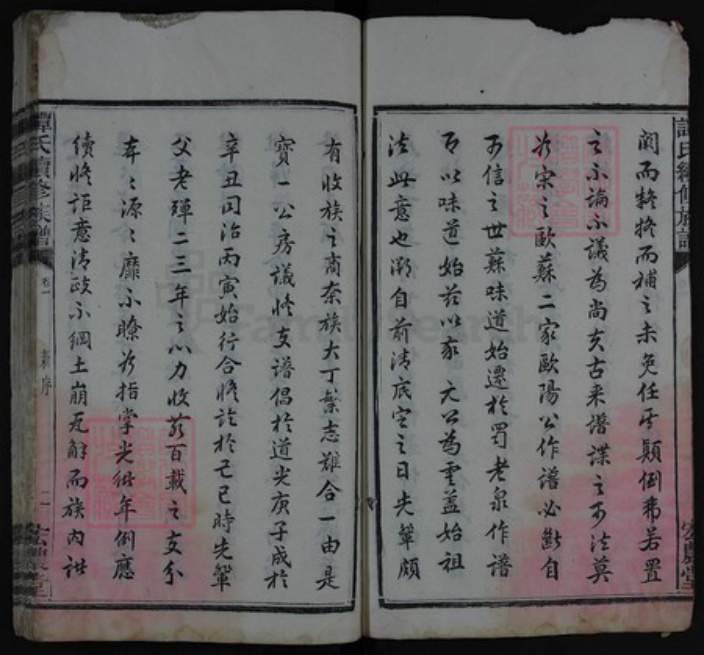 闕而輳捨而補之未免任其顛倒弗若置
之不論不議為尚矣古来譜諜之可法莫
於宋之歐蘇二家歐陽公作譜必斷自
可信之世蘇味道始遷於蜀老泉作譜
以味道始茲以家元公為雲益始祖
法此意也溯自前清底定之日先輩頗
有收族之商奈族大丁繁志難合一由是
寶一公房議修支譜倡於道光庚子成於
辛丑同治丙寅始行合修訖於己巳時先輩
父老殫二三年之心力收數百載之支分
本之源之靡不瞭於指掌光緒年例應
續修詎意清政不綱土崩瓦解而族內諸
譚氏續修族譜
卷一
新序
二
宏農堂